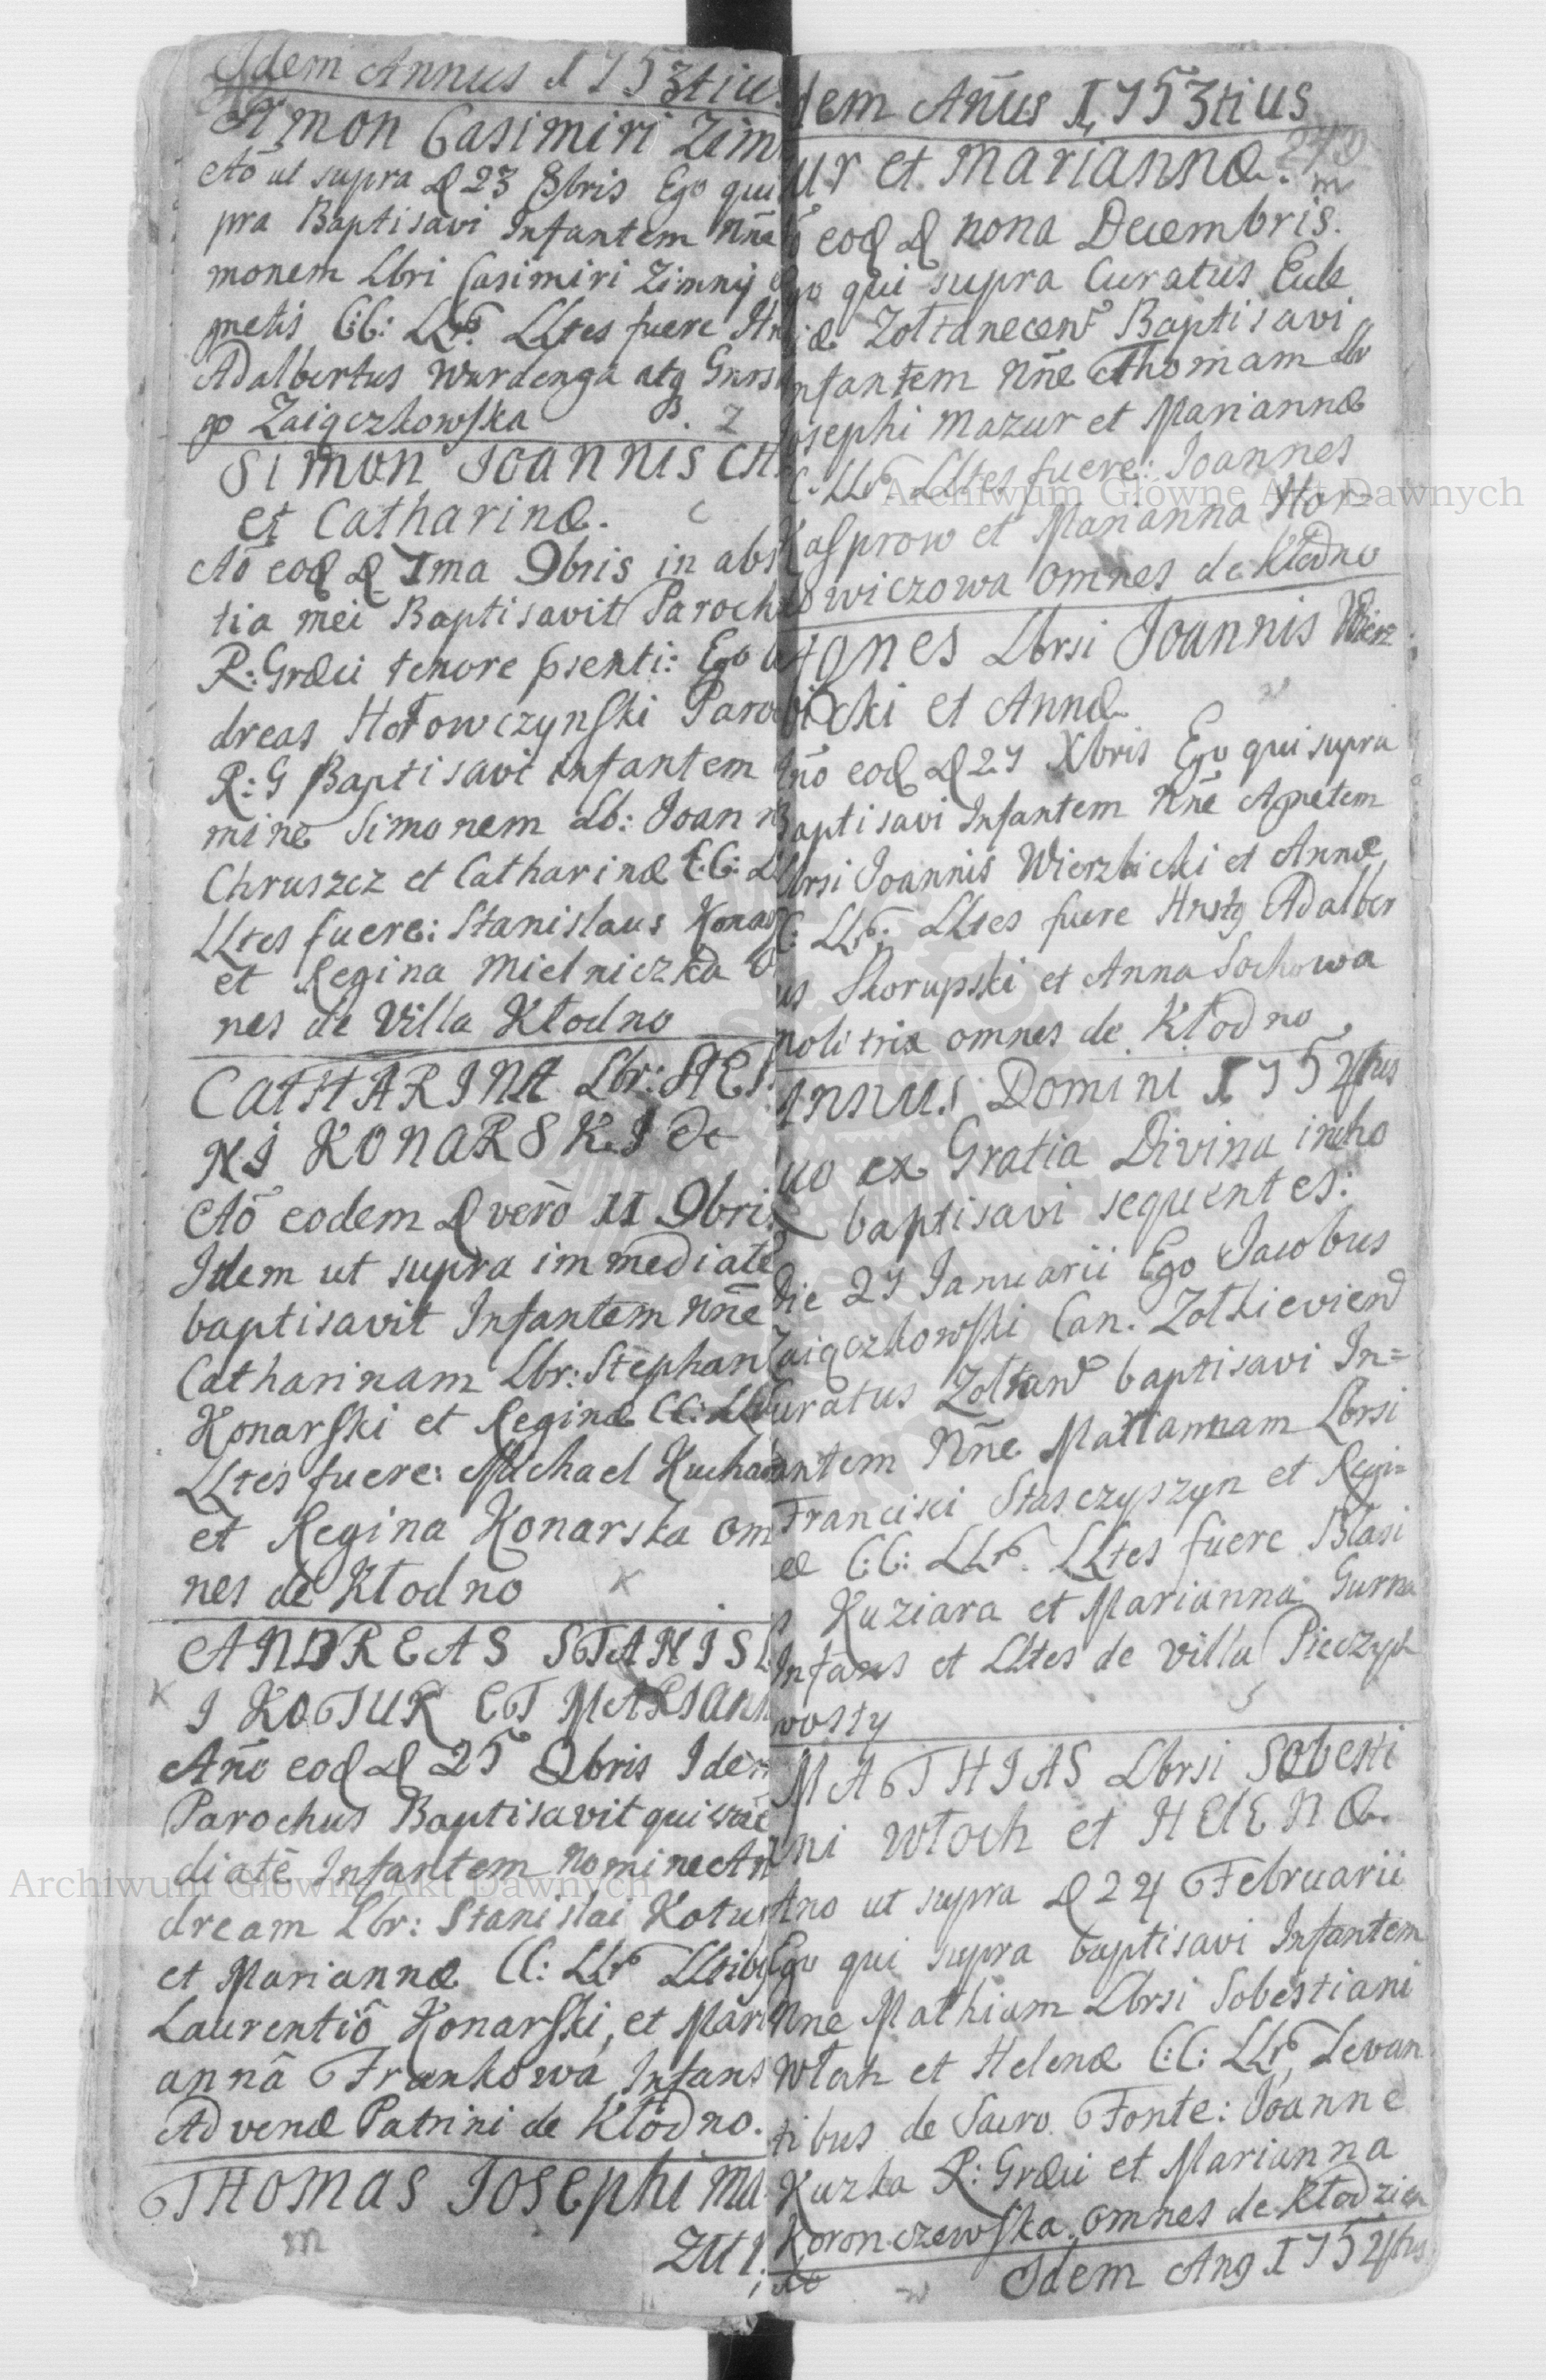 Idem Annus 1753tiu
Simon Casimiri Zim
Aō ut supra D 23 8bris Ego qui
pra Baptisavi Infantem Nn̄e
monem Lbri Casimiri Zimny
gnetis C:C: LLP. LLtes fuere
Adalbertus Wardenga atq Gnrs
go Zaięczkowska
Simon Joannis CH
et Catharinæ.
Aō eod D 1ma 9bris in abs
tia mei Baptisavit Paroch
R: Græci tenore psenti: Ego
dreas Hołowczynski Paro
R: G Baptisavi infantem
mine Simonem Lb: Joan
Chruszcz et Catharinæ C:C: L
LLtes fuere: Stanislaus Konar
et Regina Mielniczka
nes de Villa Kłodno
CATHARINA Lbr: STE
NI KONARSKI et
Aō eodem D verò 11 9bri
Idem ut supra immediatè
baptisavit Infantem Nn̄e
Catharinam Lbr: Stephan
Konarski et Reginæ CC: LL
LLtes fuere: Michael Kucha
et Regina Konarska om
nes de Kłodno
ANDREAS STANISL
I KOTUR ET MARIANN
An̄o eod D 25 9bris Idem
Parochus Baptisavit qui
diatè Infantem nomine An
dream Lbr: Stanislai Kotur
et Mariannæ CC: LLP LLtibq
Laurentiô Konarski, et Mari
annâ Frankowa Infans
Advenæ Patrini de Kłodno.
THOMAS Josephi Ma
zur
dem An̄us 1753tius
ur et Mariannæ.
eod D nona Decembris.
go qui supra Curatus Eccle
iæ Zołtanecen Baptisavi
nfantem Nn̄e Thomam Lbr
osephi Mazur et Mariannæ
C. LLP. LLtes fuere: Joannes
Kasprow et Marianna Hor=
owiczowa omnes de Kłodno
Agnes Lbrsi Joannis Wierz
bicki et Annæ
An̄o eod D 27 Xbris Ego qui supra
Baptisavi Infantem Nn̄e Agnetem
Lbrsi Joannis Wierzbicki et Annæ
C: LLP. LLtes fuere Hnstq Adalber
us Skorupski et Anna Sochowa
molitrix omnes de Kłodno
Annus Domini 1754tus
uo ex Gratia Divina incho
baptisavi sequentes:
Die 27 Januarii Ego Jacobus
Zaięczkowski Can. Zołkievien
Curatus Zołtan baptisavi In=
fantem Nn̄e Mariannam Lbrsi
Francisci Stasczyszyn et Regi=
æ C:C: LLP. LLtes fuere Blasi
s Kuziara et Marianna Gurna
Infans et LLtes de Villa Pieczych
wosty
MATHIAS Lbrsi Sobesti
ni Włoch et HELENÆ.
Ano ut supra D 24 Februarii
Ego qui supra baptisavi Infantem
Nne Mathiam Lbrsi Sobestiani
Włoh et Helenæ C:C: LLP, Levan
tibus de Sacro Fonte: Joanne
Kuzka R: Græci et Marianna
Koronczewska omnes de Kłodzien
Idem Anq 1754tus
Archiwum Główne Akt Dawnych
Archiwum Główne Akt Dawnych